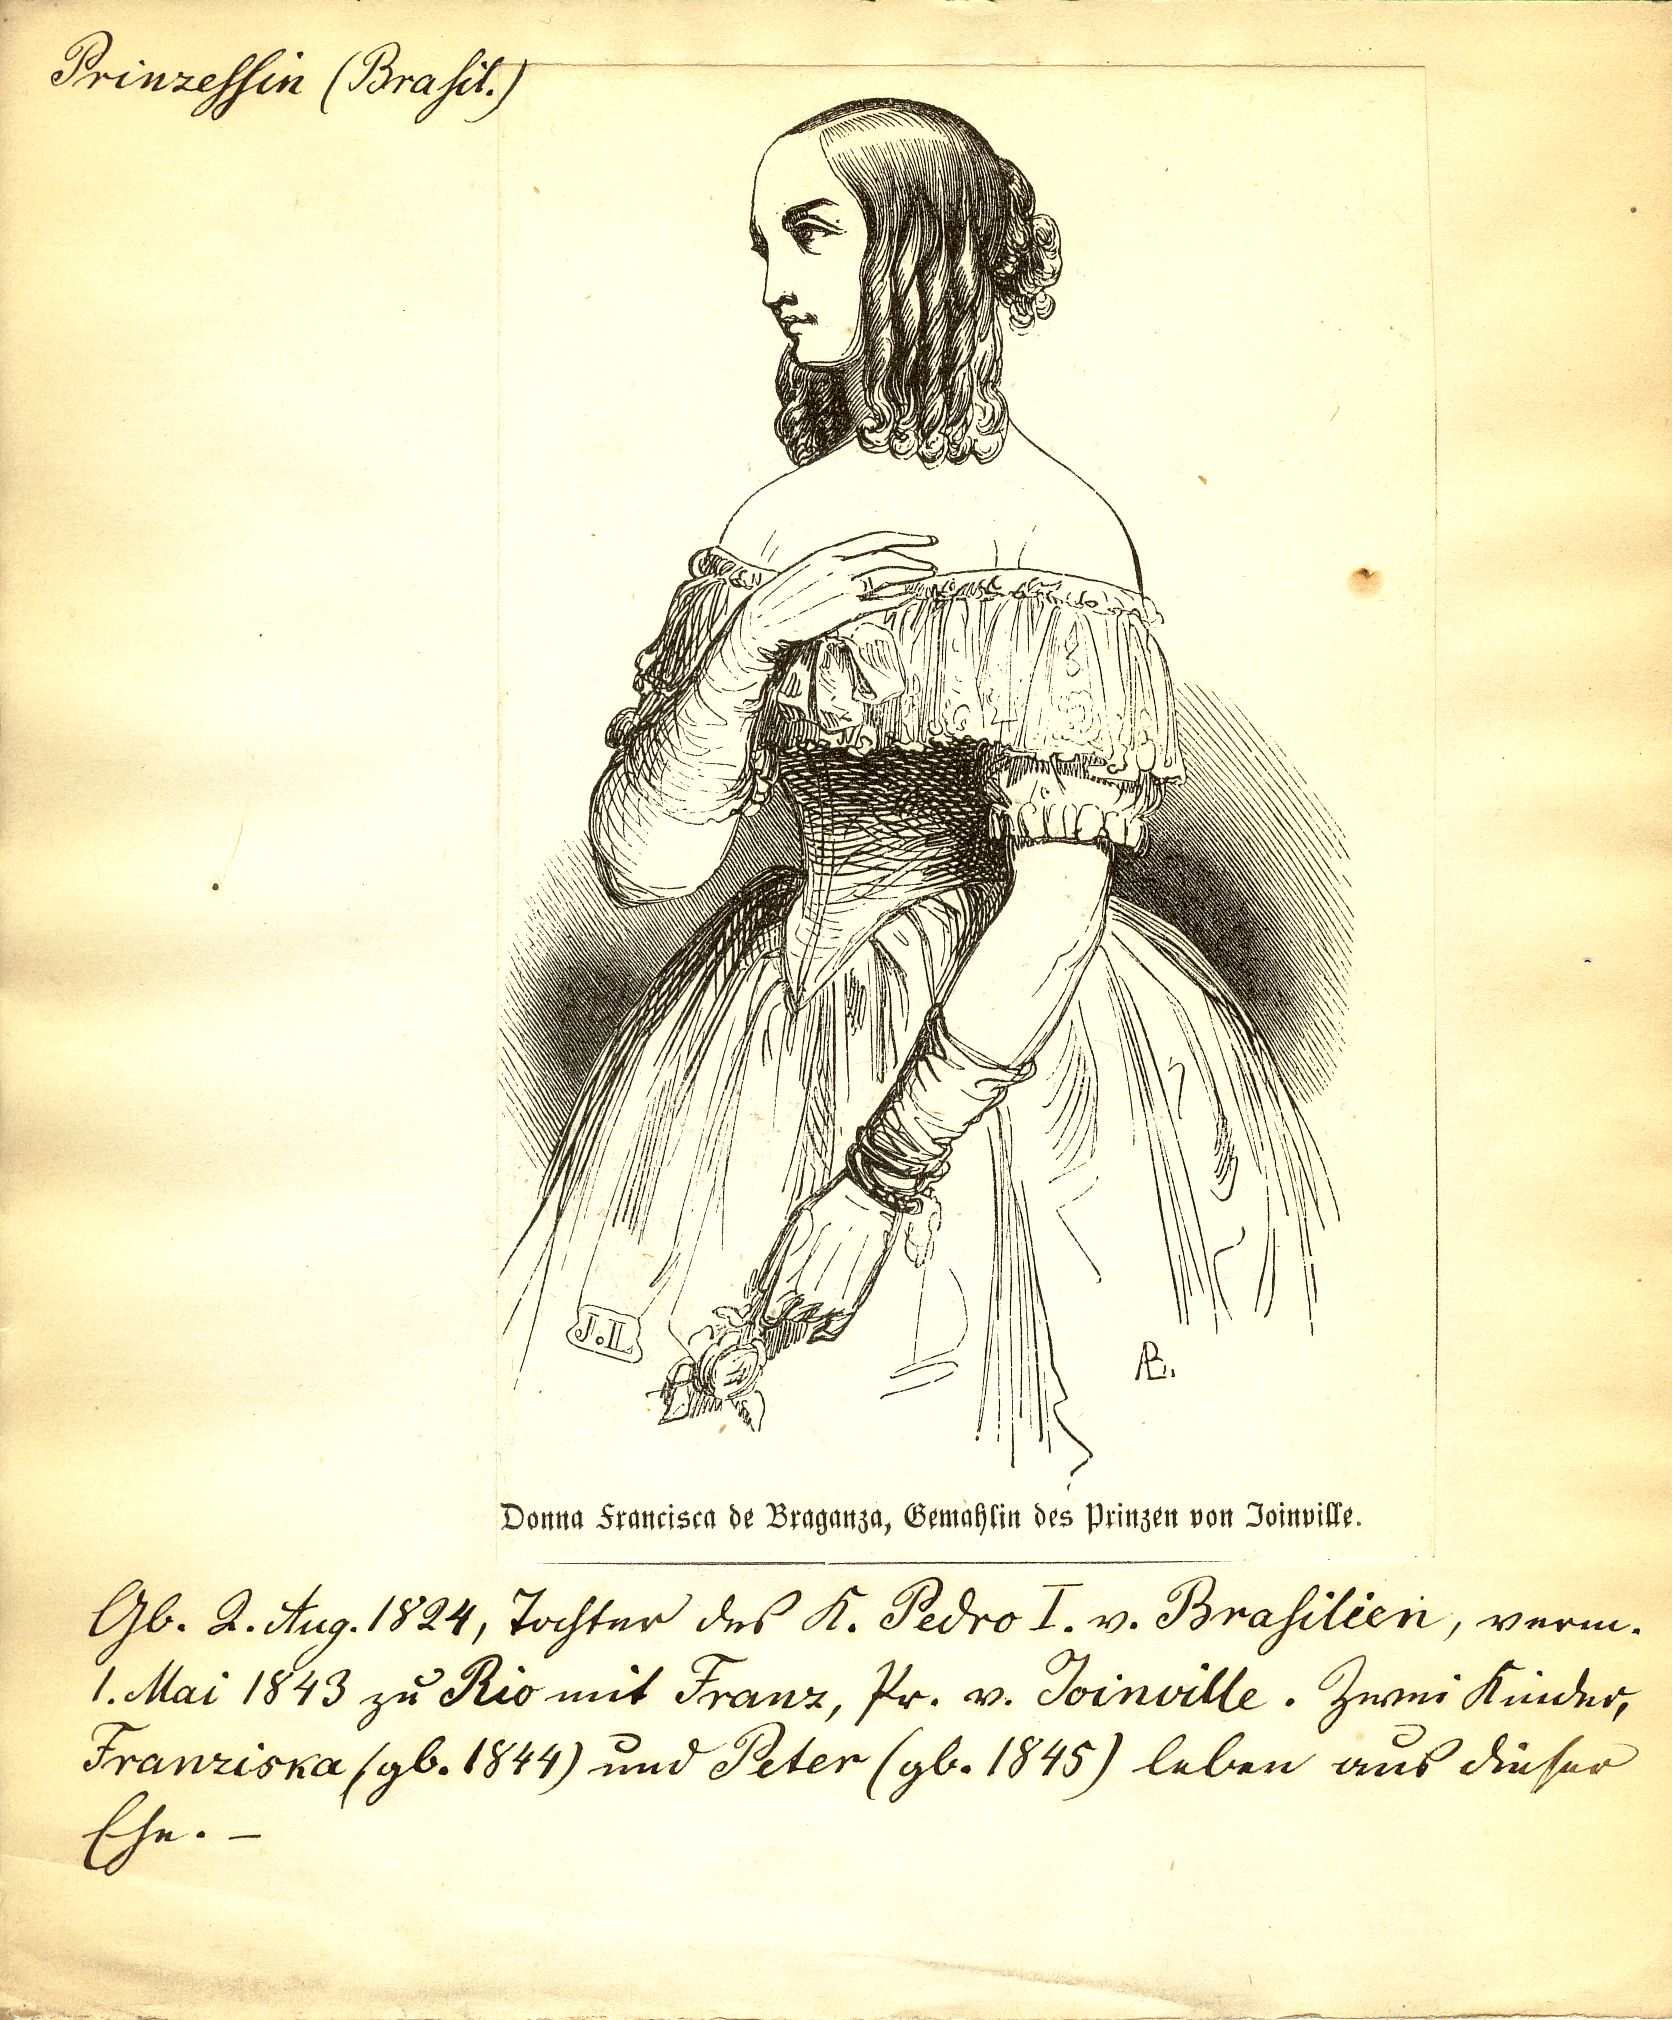 Prinzessin (Brasil.)
J.II.
Æ.
Donna Francisca de Braganza, Gemahlin des Prinzen von Joinville.
Gb. 2. Aug. 1824, Tochter des K. Pedro I. v. Brasilien, verm.
1. Mai 1843 zu Rio mit Franz, Pr. v. Joinville. Zwei Kinder,
Franziska (gb. 1844) und Peter (gb. 1845) leben aus dieser
Ehe. —